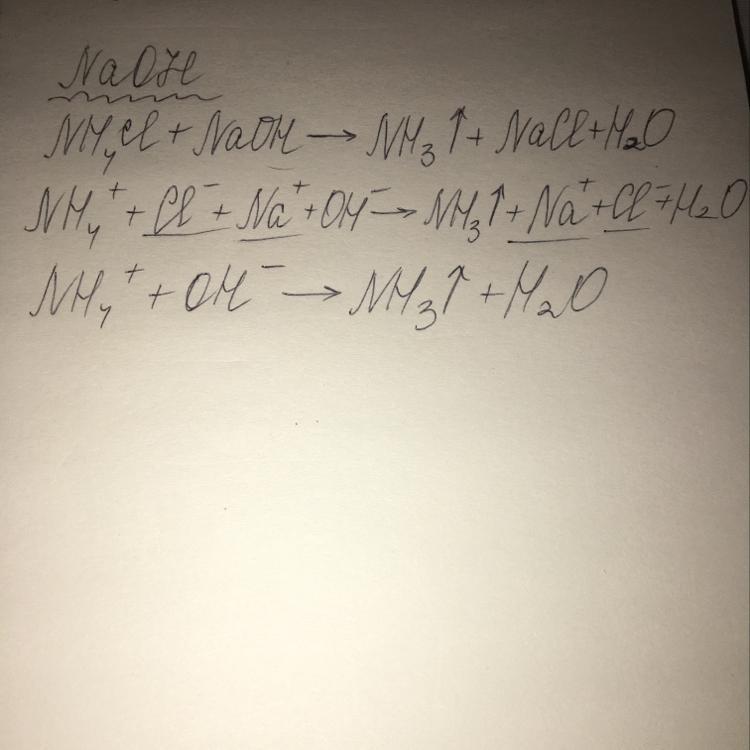 NaOH
NH₄Cl + NaOH → NH₃↑ + NaCl + H₂O
NH₄⁺ + Cl⁻ + Na⁺ + OH⁻ → NH₃↑ + Na⁺ + Cl⁻ + H₂O
NH₄⁺ + OH⁻ → NH₃↑ + H₂O